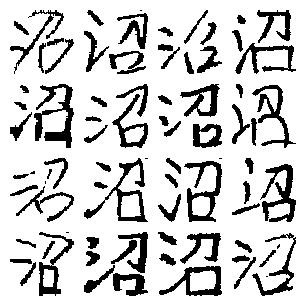 沼沼沼沼
沼沼沼沼
沼沼沼沼
沼沼沼沼